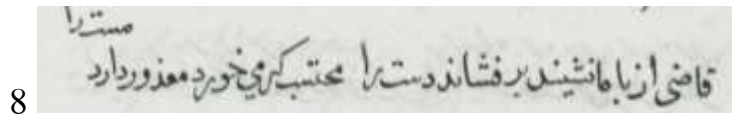 مست را
قاضی از با ما نشیند بر فشاند دست را محتسب گر می خورد معذور دارد
8